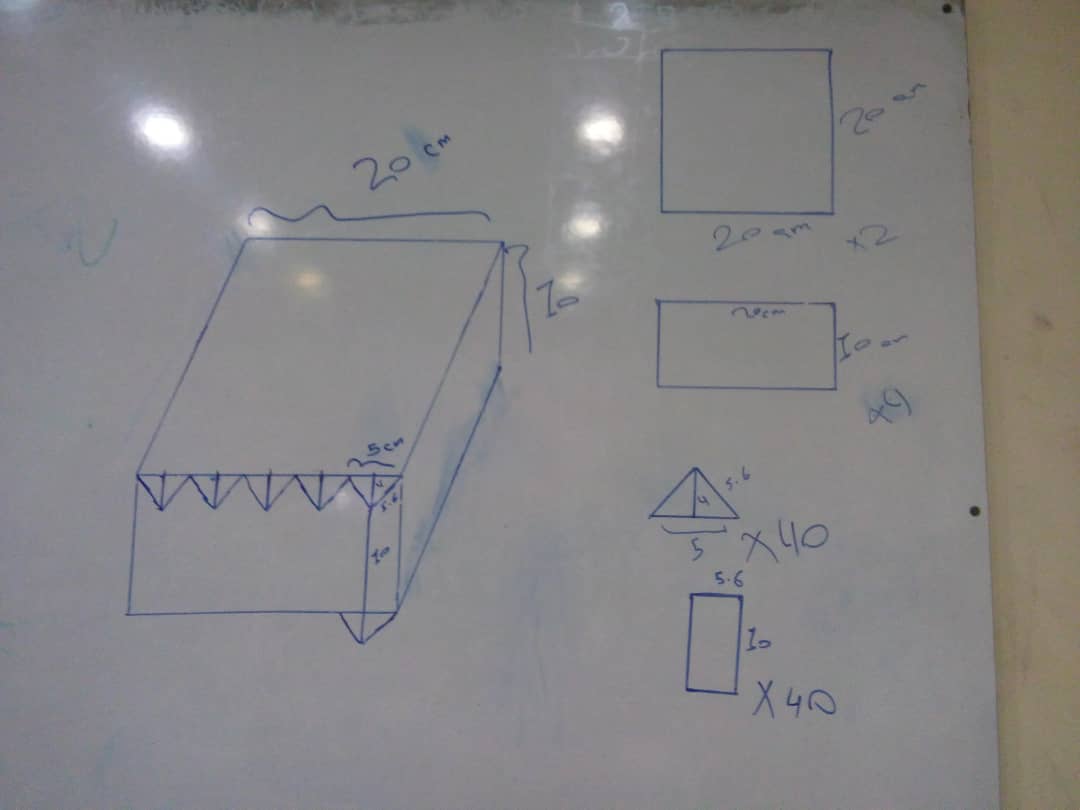 20 cm
10
5 cm
4
5.6
10
20 cm
20 cm
x2
20cm
10 cm
x9
5.6
4
5
X40
5.6
10
X40